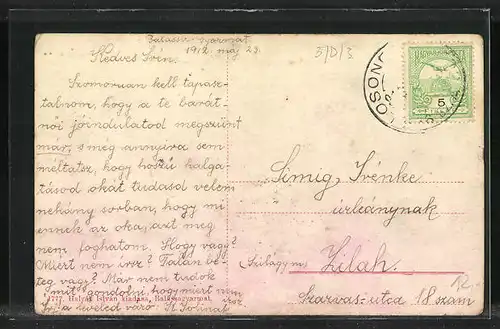 Balassa-gyarmat
1912 máj 23.
Kedves Irén.
Szomoruan kell tapasz-
talnom, hogy a te barát-
női jóindulatod megszünt
már, s meg annyira sem
méltatsz, hogy hoszú halga-
tásod okát tudasd velem
nehány sorban, hogy mi
ennek az oka, azt meg
nem foghatom. Hogy vagy?
Miért nem irsz? Talán be-
teg vagy? Már nem tudok
mit gondolni, hogy miért nem
irsz, a leveled váró
1777. Helyák István kiadása, Balassagyarmat.
5/D/3
OSONC
5
Simig Irénke
úrleánynak
(Szilágym.) Zilah.
Szarvas-utca 18 szám
12.